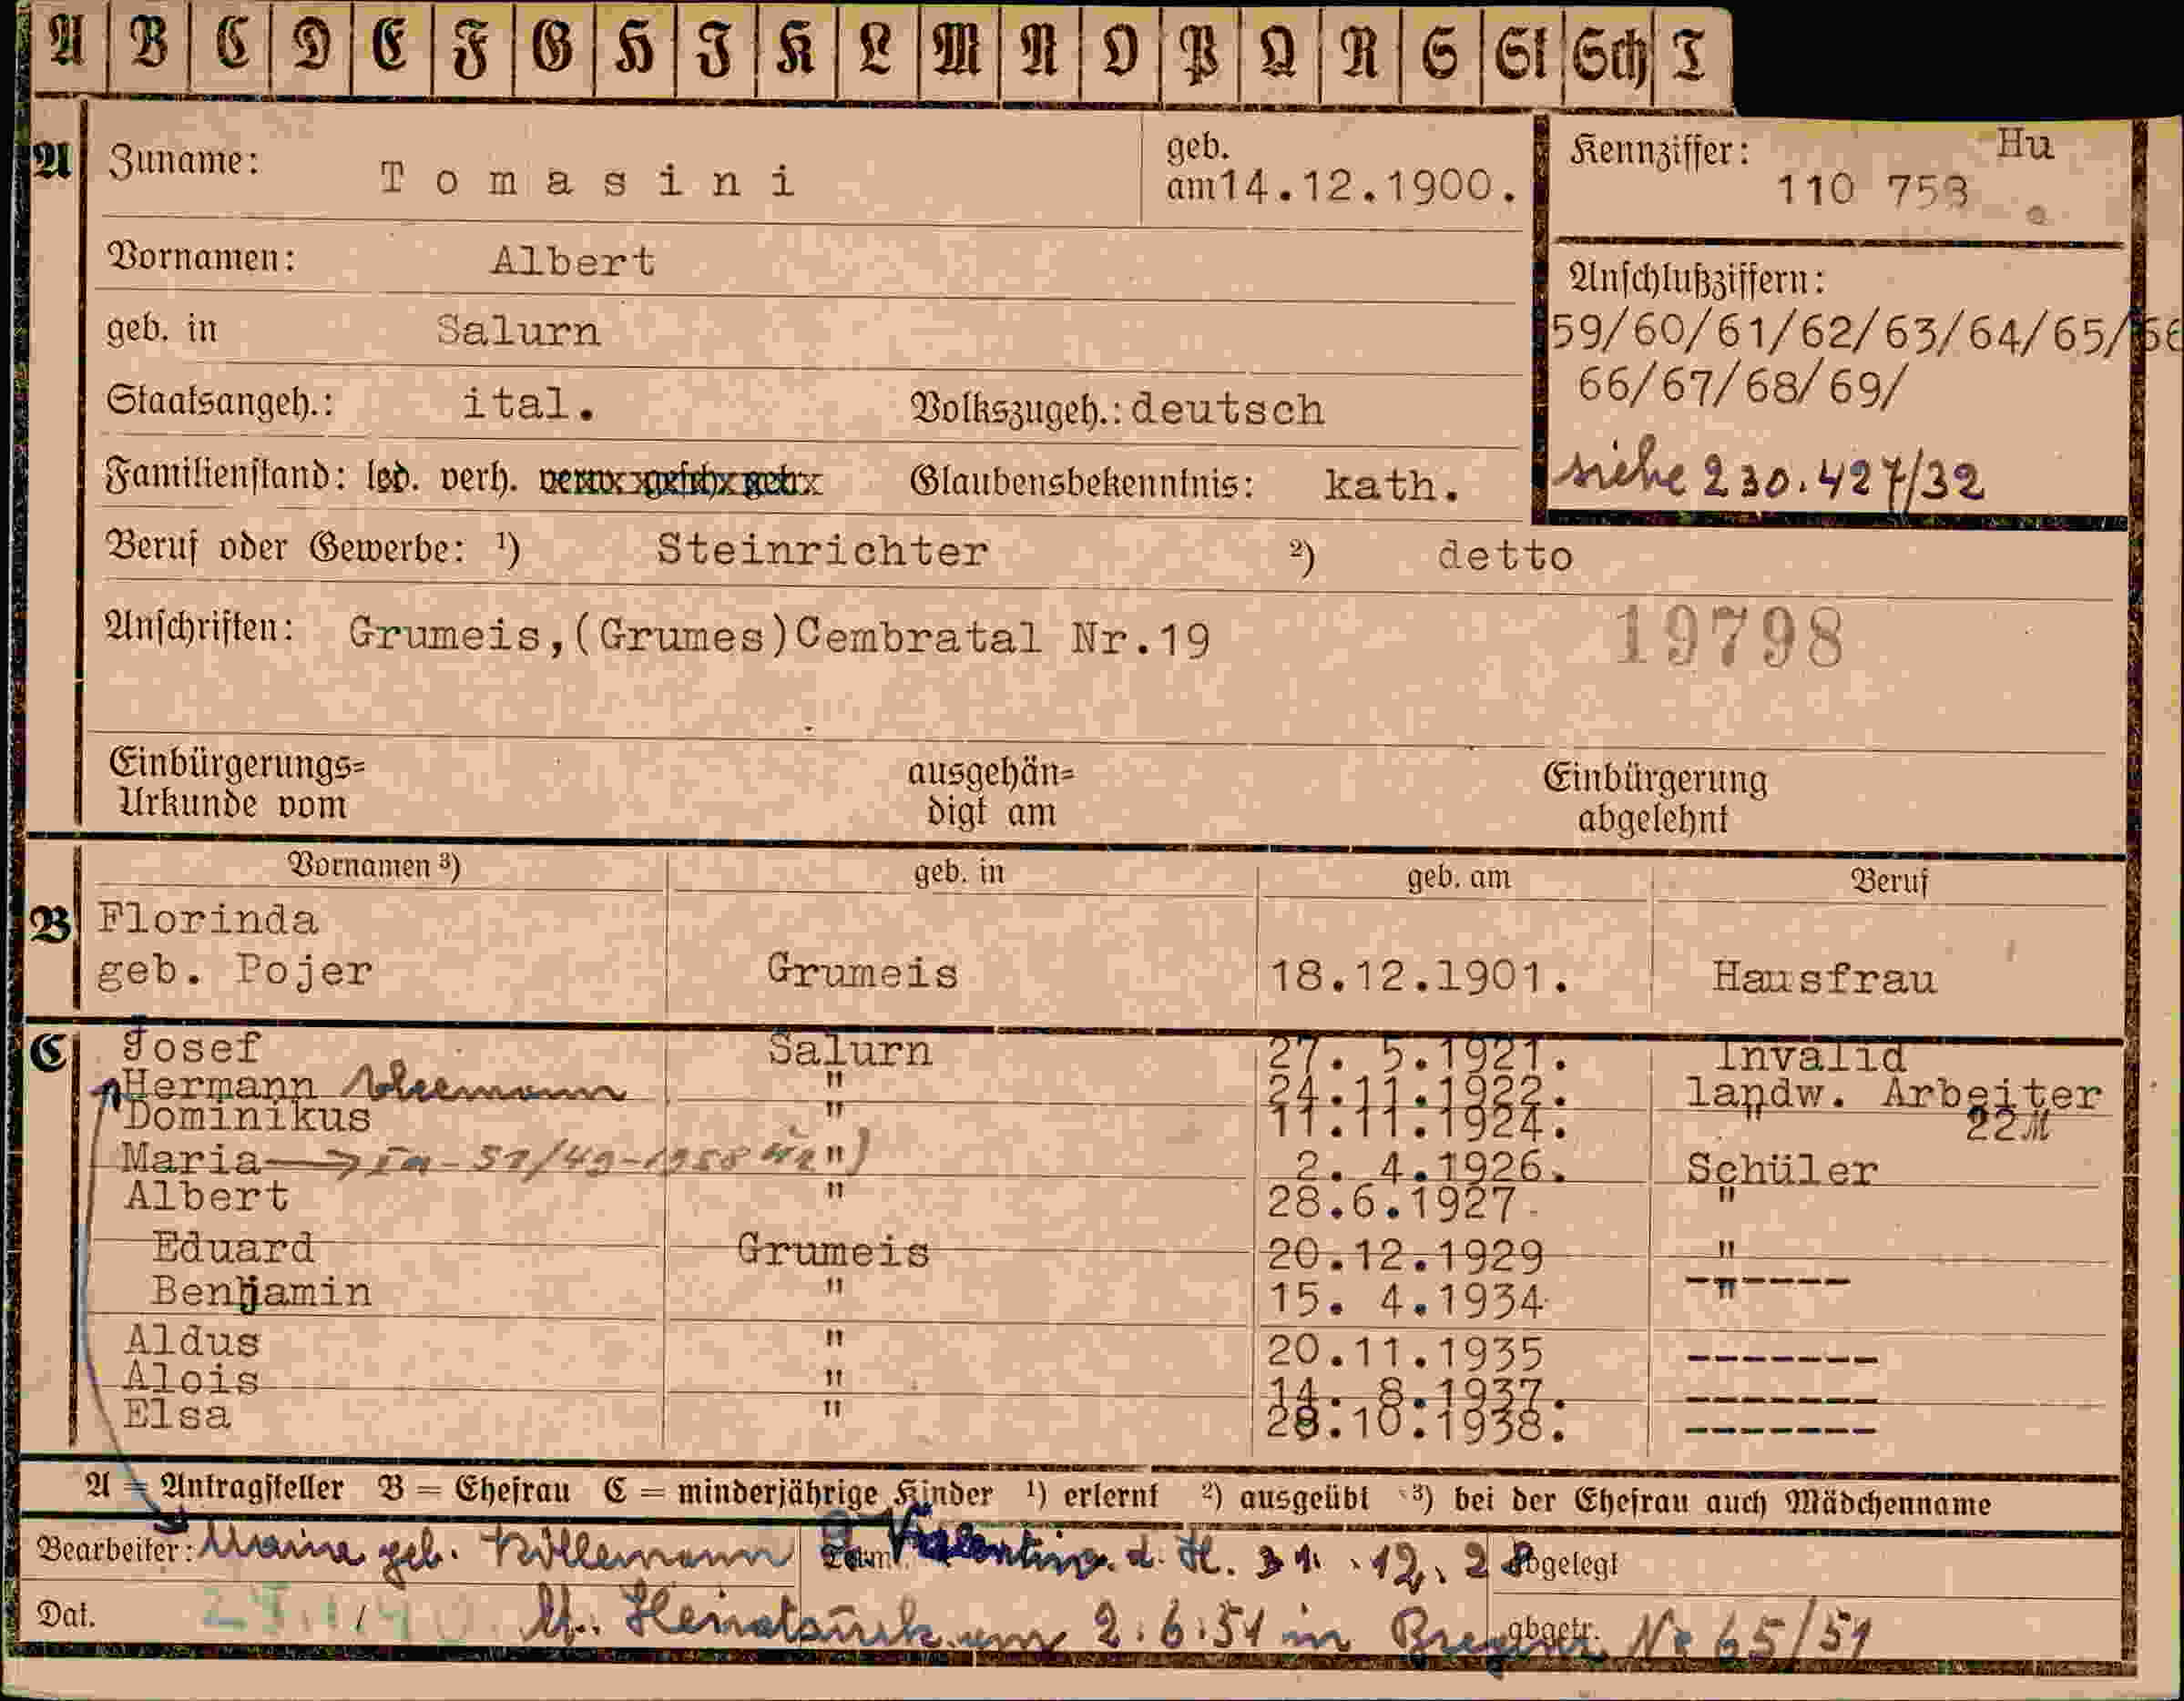 A B C D E F G H J K L M N O P Q R S St Sch T
A Zuname: Tomasini geb. am 14.12.1900. Kennziffer: Hu
110 758
Vornamen: Albert
Anschlußziffern:
geb. in Salurn 59/60/61/62/63/64/65/
66/67/68/69/
Staatsangeh.: ital. Volkszugeh.: deutsch
Familienstand: led. verh. verw. gesch. getr. Glaubensbekenntnis: kath. siehe 230.427/32
Beruf oder Gewerbe: ¹) Steinrichter ²) detto
Anschriften: Grumeis,(Grumes)Cembratal Nr.19 19798
Einbürgerungs= ausgehän= Einbürgerung
Urkunde vom digt am abgelehnt
Vornamen ³) geb. in geb. am Beruf
B Florinda
geb. Pojer Grumeis 18.12.1901. Hausfrau
C Josef Salurn 27. 5.1921. Invalid
Hermann " 24.11.1922. landw. Arbeiter
Dominikus " 11.11.1924. " 22M
Maria " 2. 4.1926. Schüler
Albert " 28.6.1927. "
Eduard Grumeis 20.12.1929 "
Benjamin " 15. 4.1934 "
Aldus " 20.11.1935 -------
Alois " 14. 8.1937. -------
Elsa " 28.10.1938. -------
A = Antragsteller B = Ehefrau C = minderjährige Kinder ¹) erlernt ²) ausgeübt ³) bei der Ehefrau auch Mädchenname
Bearbeiter: geb. d. H. 31.12.2 abgelegt
Dat. am 2.6.51 in abgetr. No 65/51